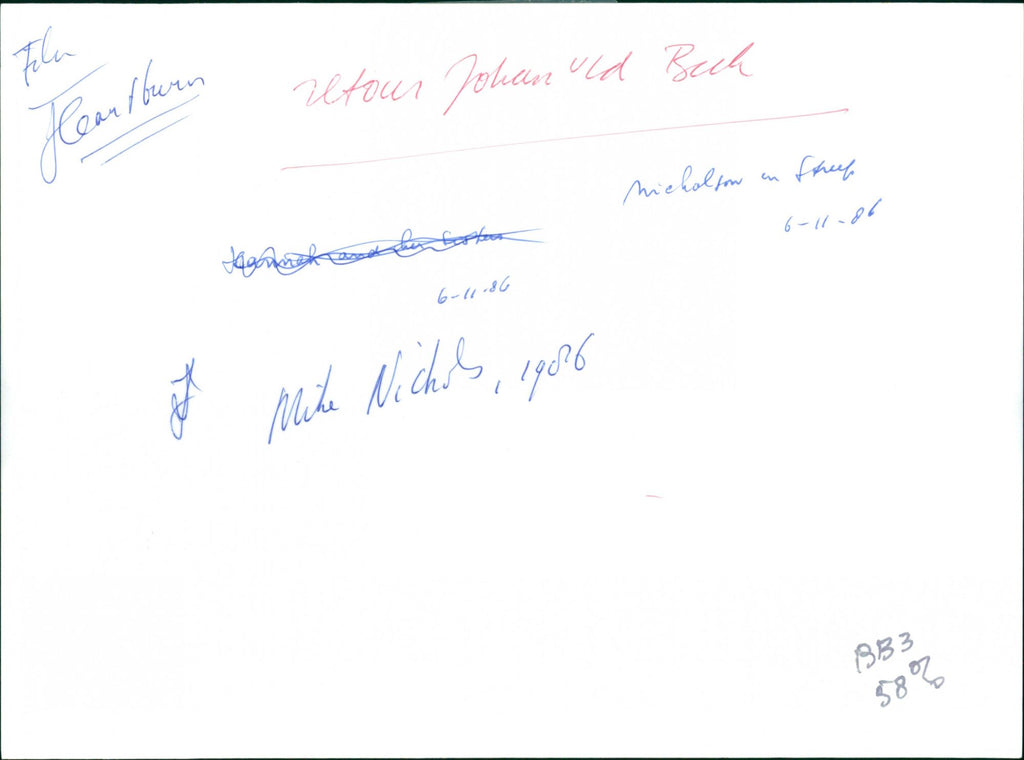 Film
Heartburn
retour Johan vld Beek
Nicholson en Streep
6-11-86
Hannah and her sisters
6-11-86
Mike Nichols, 1986
BB3
58%